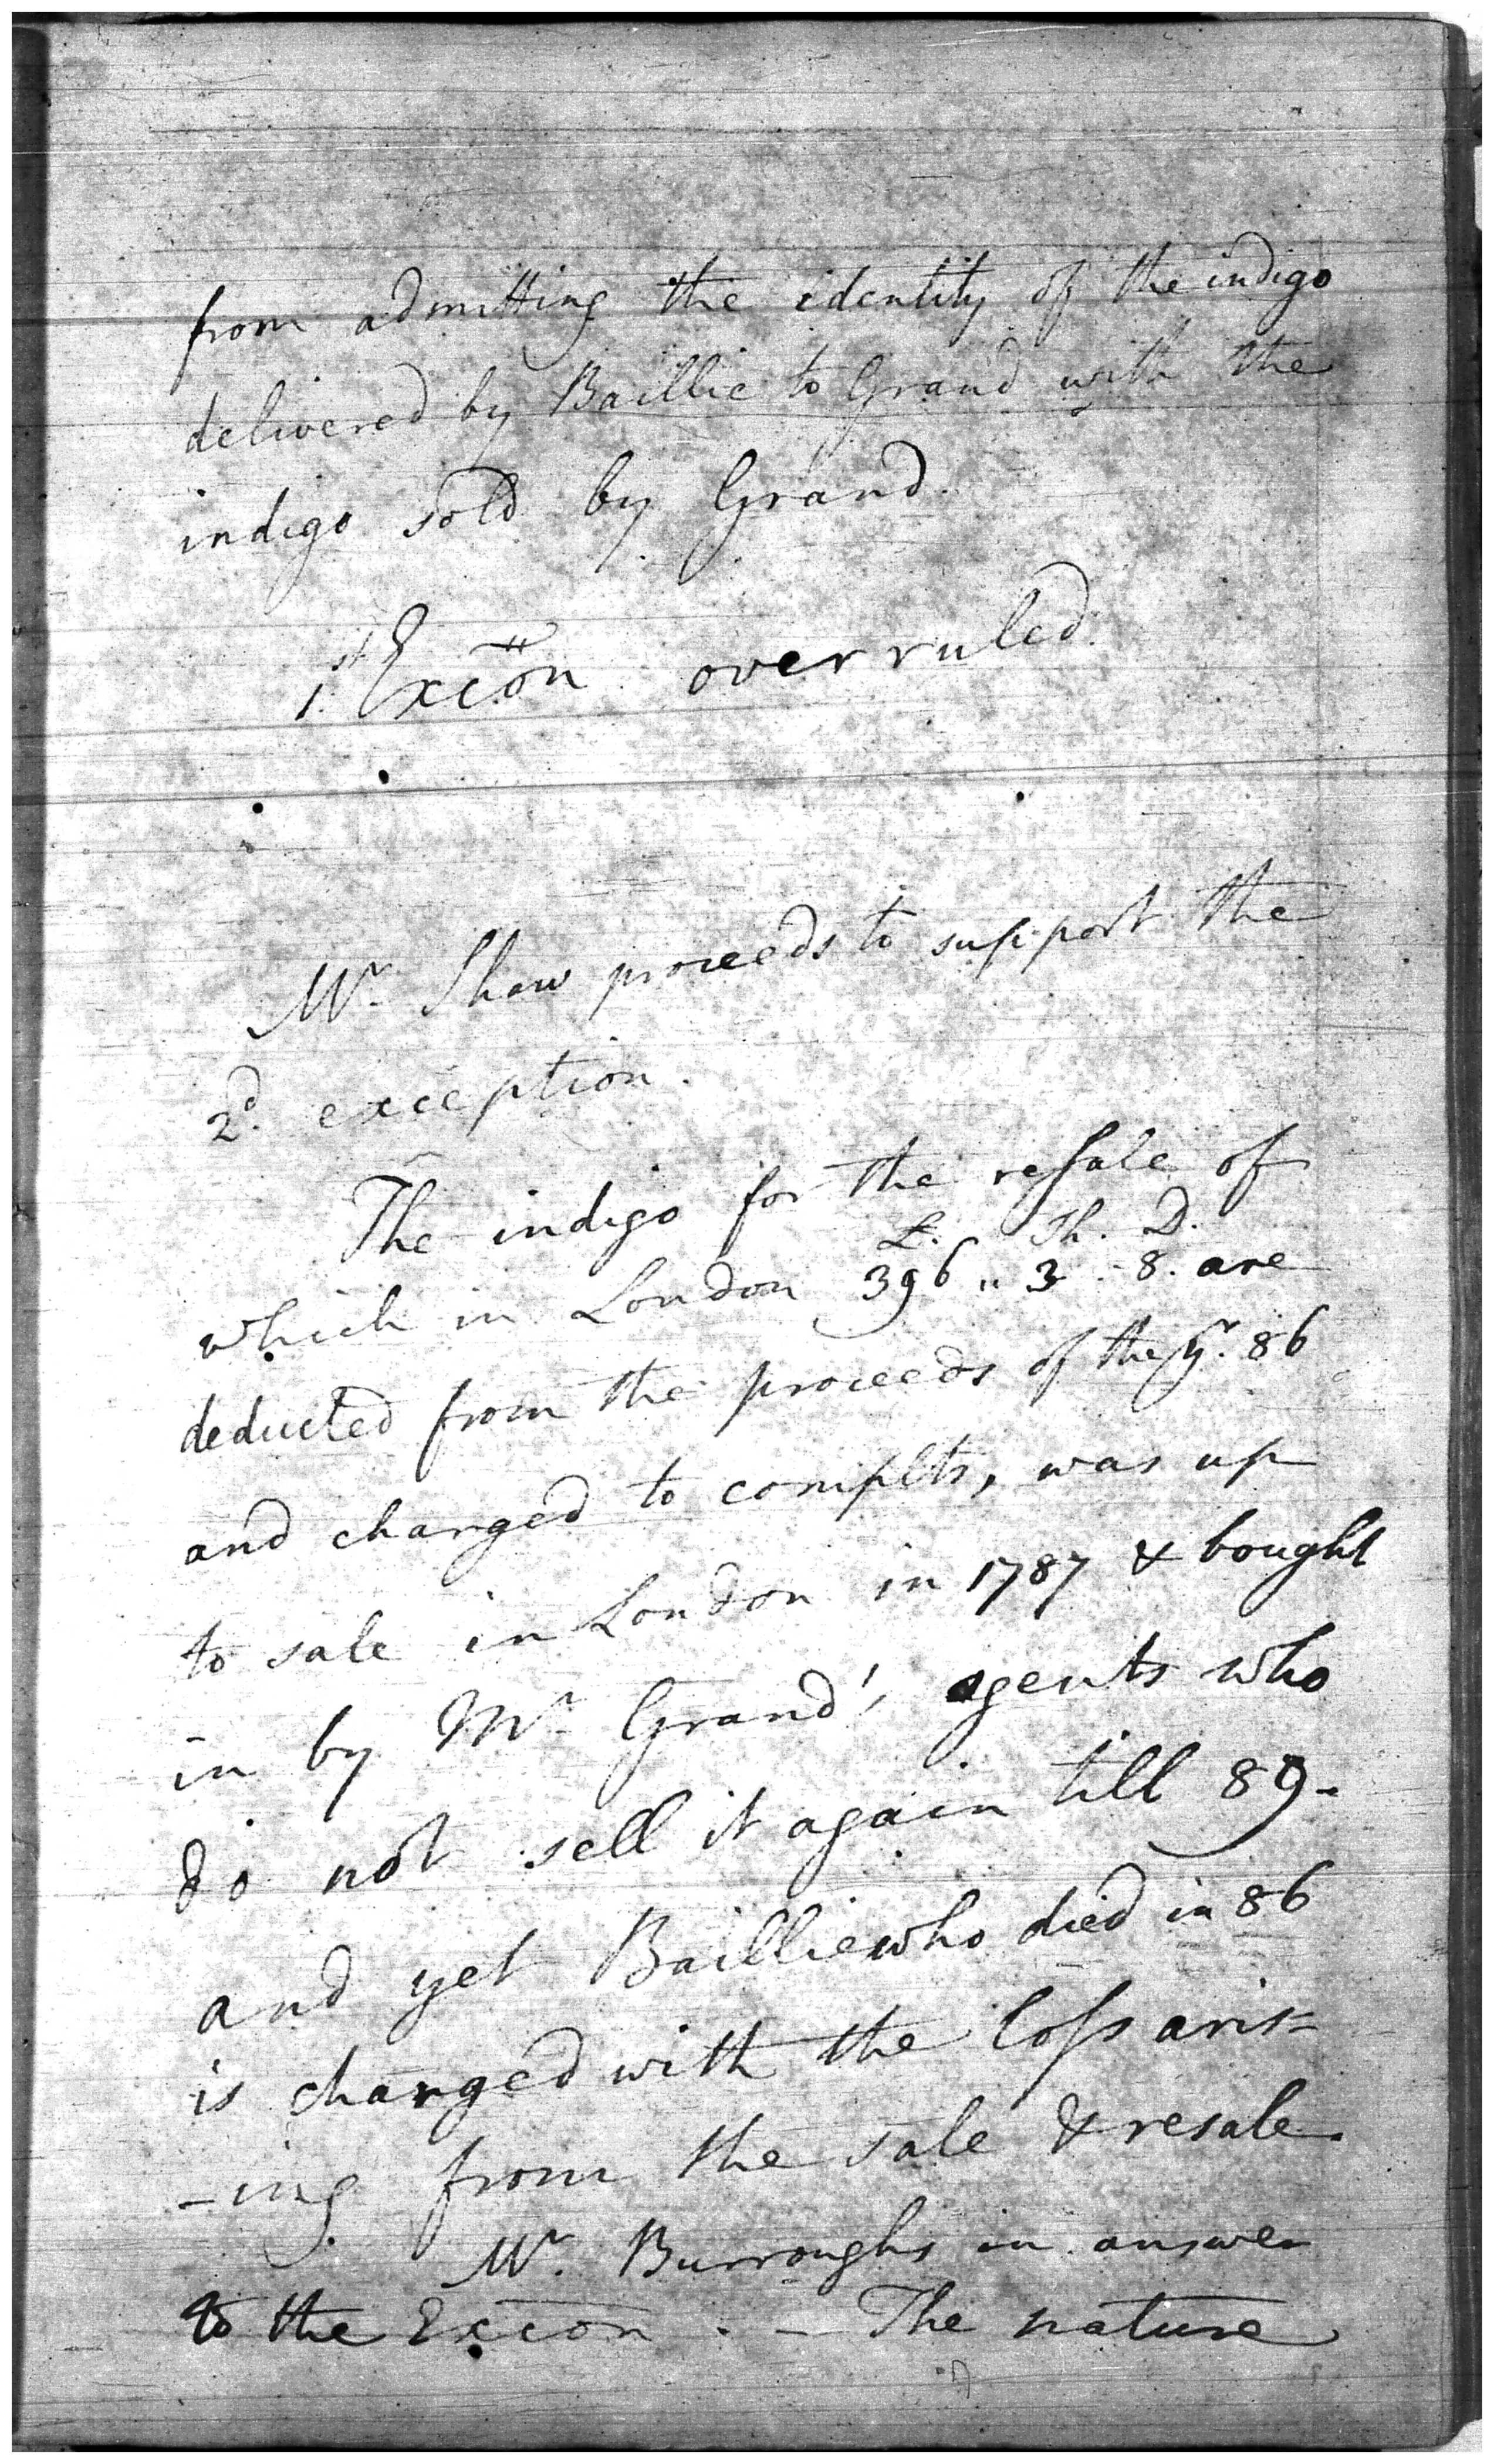 from admitting the identity of the indigo
delivered by Baillie to Grand with the
indigo sold by Grand.
1st. Excōn overruled.
Mr. Shaw proceeds to support the
2d. exception.
The indigo for the reſsale of
L. Sh. D.
which in London 396 " 3 - 8. are
deducted from the proceeds of the yr. 86
and charged to complts, was up
to sale in London in 1787 & bought
in by Mr. Grand's agents who
do not sell it again till 89-
and yet Baillie who died in 86
is charged with the loſs aris-
-ing from the sale & resale.
Mr. Burroughs in answer
to the Excōn. - The nature